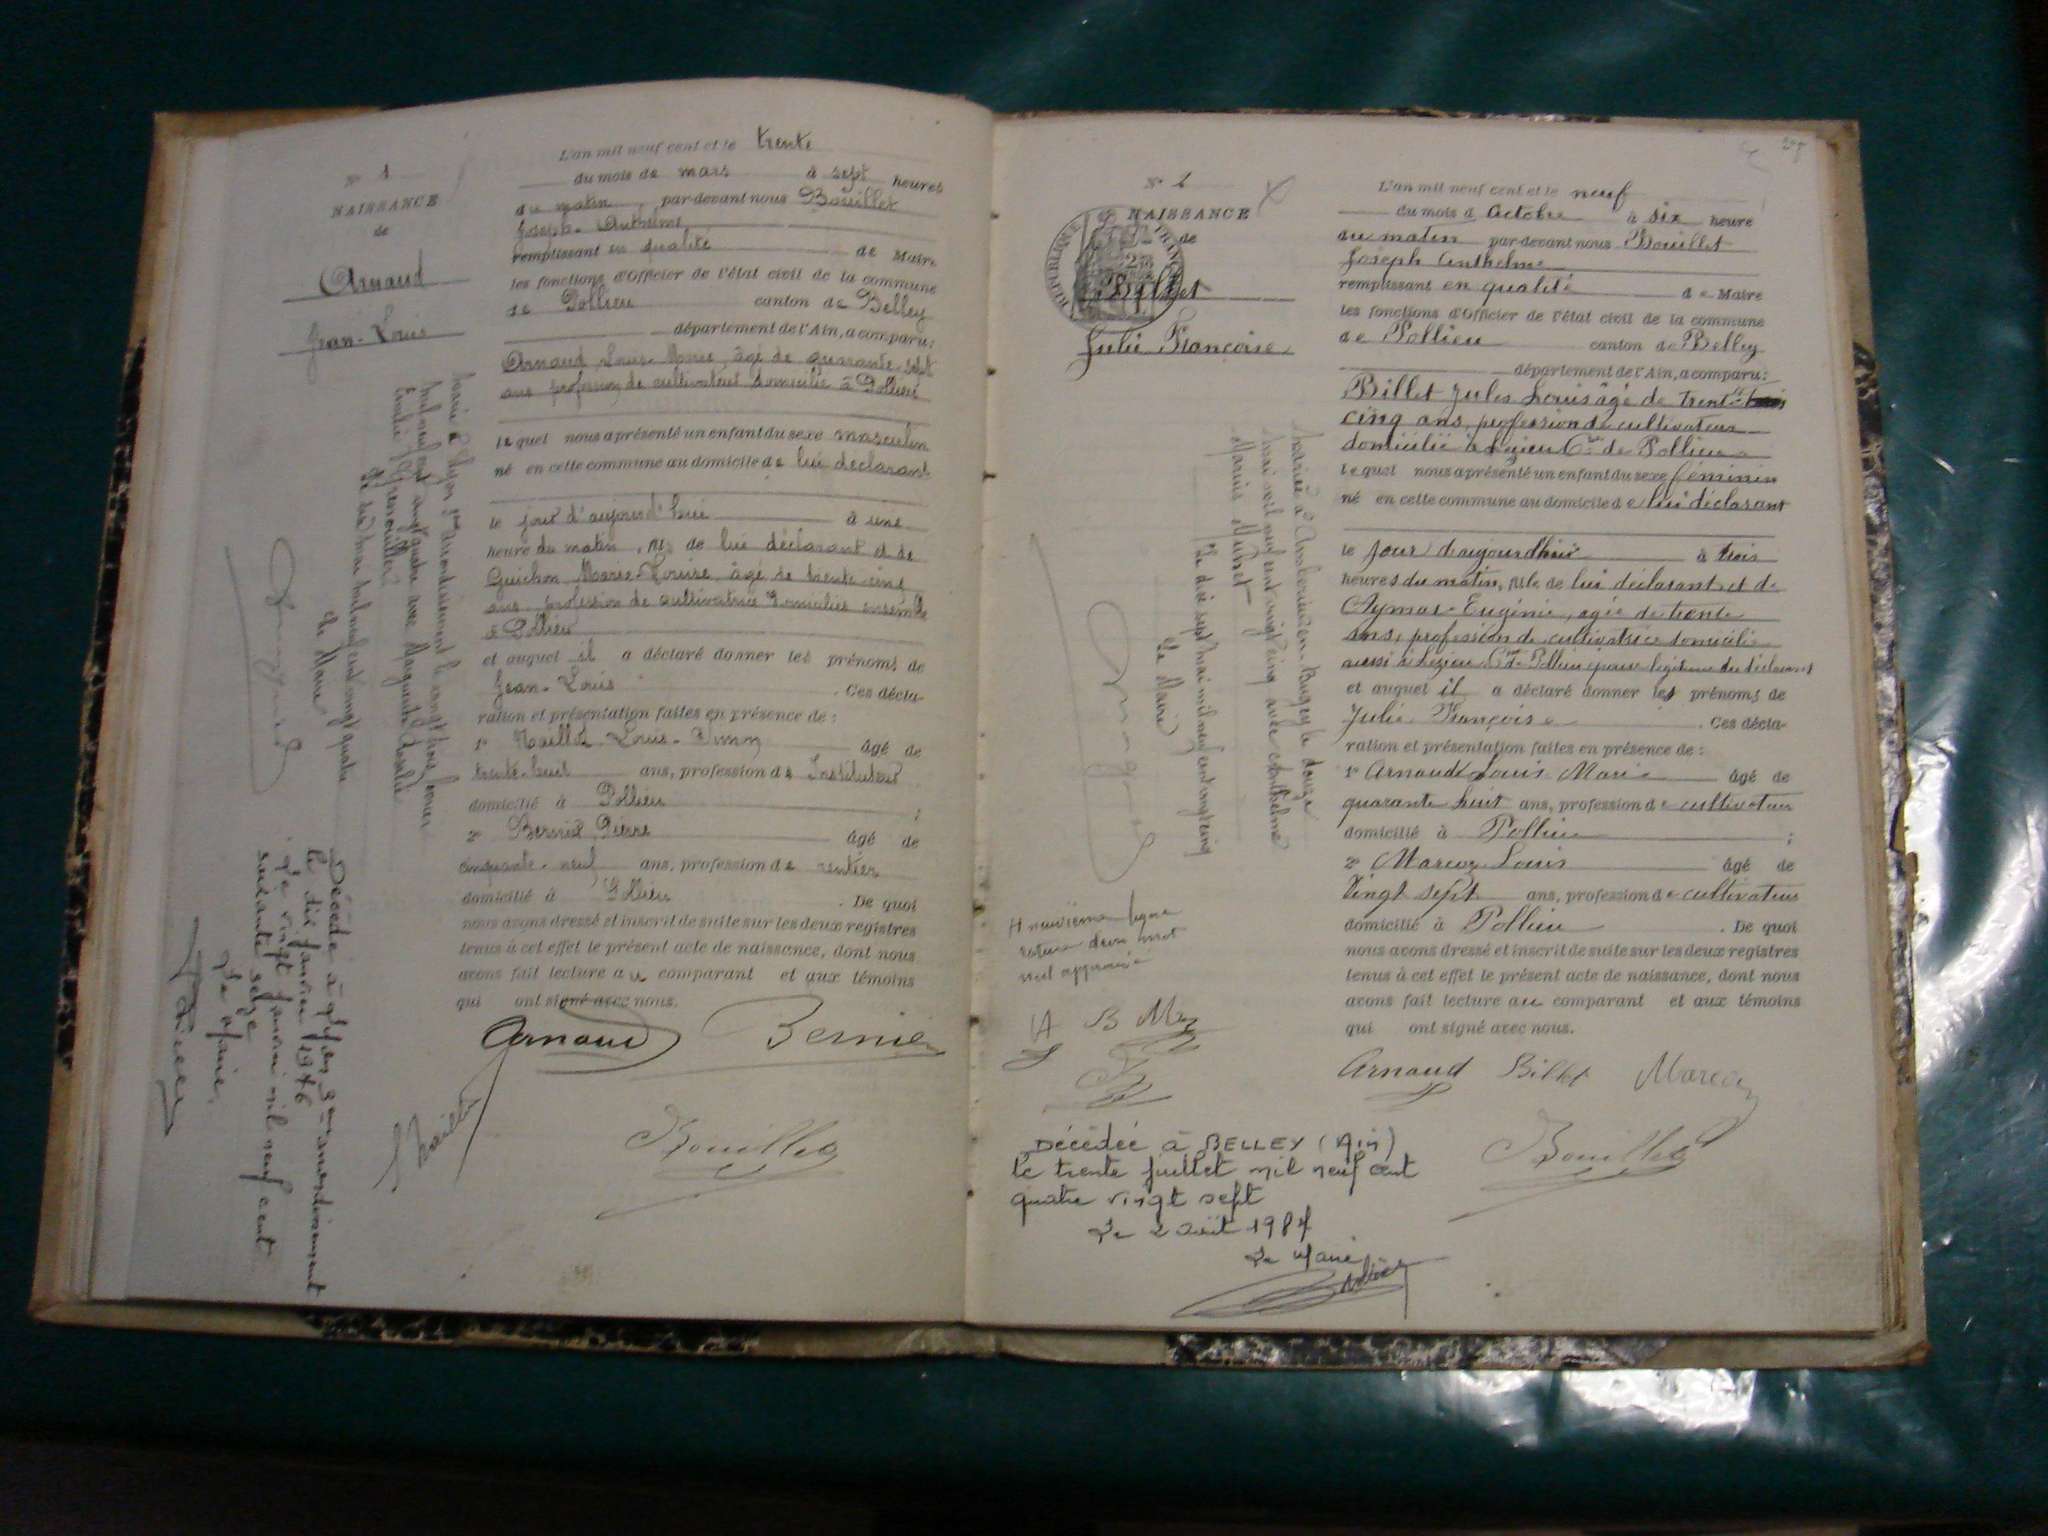 N° 1
NAISSANCE
de
Arnaud
Jean-Louis
L'an mil neuf cent et le trente
du mois de mars à sept heures
du matin par-devant nous Bouillet
Joseph-Anthelme
remplissant en qualité de Maire
les fonctions d'Officier de l'état civil de la commune
de Pollieu canton de Belley
département de l'Ain, a comparu:
Arnaud Louis-Marie, âgé de quarante-sept
ans profession de cultivateur domicilié à Pollieu
lequel nous a présenté un enfant du sexe masculin
né en cette commune au domicile de lui déclarant
le jour d'aujourd'hui à une
heure du matin, fils de lui déclarant et de
Guichon Marie-Louise, âgé de trente-cinq
ans, profession de cultivatrice domiciliés ensemble
à Pollieu
et auquel il a déclaré donner les prénoms de
Jean-Louis . Ces décla-
ration et présentation faites en présence de :
1° Louis- âgé de
trente-huit ans, profession de Instituteur
domicilié à Pollieu ;
2° Bernier Pierre âgé de
cinquante-neuf ans, profession de rentier
domicilié à Pollieu . De quoi
nous avons dressé et inscrit de suite sur les deux registres
tenus à cet effet le présent acte de naissance, dont nous
avons fait lecture au comparant et aux témoins
qui ont signé avec nous.
Arnaud Bernier
Bouillet
Marié à Lyon arrondissement le vingt trois février
mil neuf cent vingt quatre avec Marguerite
Emilie
mil neuf cent vingt quatre
Le Maire
Décédé à Lyon arrondissement
le dix janvier 1976
Le vingt janvier mil neuf cent
soixante seize
Le Maire,
N° 2
NAISSANCE
de
RÉPUBLIQUE FRANÇAISE
Billet
Julie Françoise
L'an mil neuf cent et le neuf
du mois d'Octobre à six heure
du matin par-devant nous Bouillet
Joseph Anthelme
remplissant en qualité de Maire
les fonctions d'Officier de l'état civil de la commune
de Pollieu canton de Belley
département de l'Ain, a comparu:
Billet Jules Louis âgé de trente
cinq ans, profession de cultivateur
domicilié à Cne de Pollieu
lequel nous a présenté un enfant du sexe féminin
né en cette commune au domicile de lui déclarant
le jour d'aujourdhui à trois
heures du matin, fille de lui déclarant et de
Aymar Eugénie, agée de trente
ans, profession de cultivatrice domicilié
aussi à Cne Pollieu épouse légitime du déclarant
et auquel il a déclaré donner les prénoms de
Julie Françoise . Ces décla-
ration et présentation faites en présence de :
1° Arnaud Louis Marie âgé de
quarante huit ans, profession de cultivateur
domicilié à Pollieu ;
2° Louis âgé de
Vingt sept ans, profession de cultivateur
domicilié à Pollieu . De quoi
nous avons dressé et inscrit de suite sur les deux registres
tenus à cet effet le présent acte de naissance, dont nous
avons fait lecture au comparant et aux témoins
qui ont signé avec nous.
Arnaud Billet
Bouillet
Mariée à Ambérieu-en-Bugey le douze
mai mil neuf cent vingt cinq avec Anthelme
Marius
Le dix sept mai mil neuf cent vingt cinq
Le Maire
neuvième ligne
rature d'un mot
nul approuvé
A B
Décédée à BELLEY (Ain)
le trente juillet mil neuf cent
quatre vingt sept
Le 2 août 1987
Le Maire